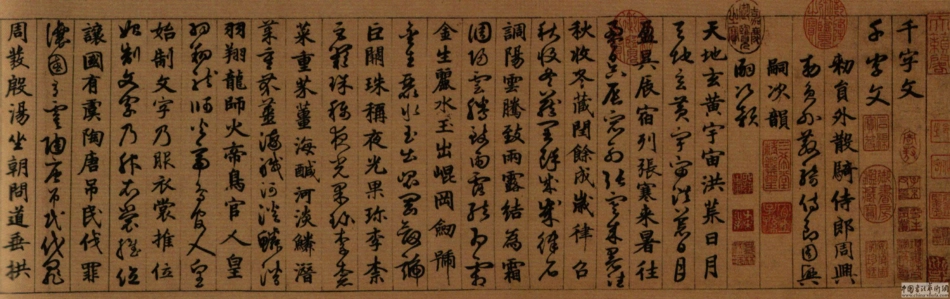 千字文
千字文
敕員外散騎侍郎周興
敕員外散騎侍郎周興
嗣次韻
嗣次韻
天地玄黃宇宙洪荒日月
天地玄黃宇宙洪荒日月
盈昃辰宿列張寒来暑往
盈昃辰宿列張寒来暑往
秋收冬藏閏餘成歲律召
秋收冬藏閏餘成歲律召
調陽雲騰致雨露結為霜
調陽雲騰致雨露結為霜
金生麗水玉出崐岡劒號
金生麗水玉出崐岡劒號
巨闕珠稱夜光果珍李柰
巨闕珠稱夜光果珍李柰
菜重芥薑海鹹河淡鱗潛
菜重芥薑海鹹河淡鱗潛
羽翔龍師火帝鳥官人皇
羽翔龍師火帝鳥官人皇
始制文字乃服衣裳推位
始制文字乃服衣裳推位
讓國有虞陶唐弔民伐罪
讓國有虞陶唐弔民伐罪
周發殷湯坐朝問道垂拱